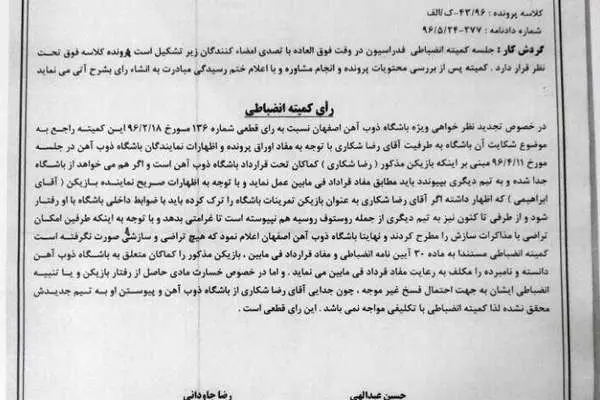 کلاسه پرونده : ۴۳/۹۶-ک/الف
شماره دادنامه : ۲۷۷-۹۶/۵/۲۴
گردش کار : جلسه کمیته انضباطی فدراسیون در وقت فوق العاده با تصدی امضاء کنندگان زیر تشکیل است پرونده کلاسه فوق تحت
نظر قرار دارد . کمیته پس از بررسی محتویات پرونده و انجام مشاوره و با اعلام ختم رسیدگی مبادرت به انشاء رای بشرح آتی می نماید
رأی کمیته انضباطی
در خصوص تجدید نظر خواهی ویژه باشگاه ذوب آهن اصفهان نسبت به رای قطعی شماره ۱۳۶ مورخ ۹۶/۲/۱۸ این کمیته راجع به
موضوع شکایت آن باشگاه به طرفیت آقای رضا شکاری با توجه به مفاد اوراق پرونده و اظهارات نمایندگان باشگاه ذوب آهن در جلسه
مورخ ۹۶/۴/۱۱ مبنی بر اینکه بازیکن مذکور ( رضا شکاری ) کماکان تحت قرارداد باشگاه ذوب آهن است و اگر هم می خواهد از باشگاه
جدا شده و به تیم دیگری بپیوندد باید مطابق مفاد قراداد فی مابین عمل نماید و با توجه به اظهارات صریح نماینده بازیکن ( آقای
ابراهیمی ) که اظهار داشته اگر آقای رضا شکاری به عنوان بازیکن تمرینات باشگاه را ترک کرده باید با ضوابط داخلی باشگاه با او رفتار
شود و از طرفی تا کنون نیز به تیم دیگری از جمله روستوف روسیه هم نپیوسته است تا غرامتی بدهد و با توجه به اینکه طرفین امکان
تراضی یا مذاکرات سازش را مطرح کردند و نهایتا باشگاه ذوب آهن اصفهان اعلام نمود که هیچ تراضی و سازشی صورت نگرفته است
کمیته انضباطی مستندا به ماده ۳۰ آیین نامه انضباطی و مفاد قرارداد فی مابین ، بازیکن مذکور را کماکان متعلق به باشگاه ذوب آهن
دانسته و نامبرده را مکلف به رعایت مفاد قراداد فی مابین می نماید . و اما در خصوص خسارت مادی حاصل از رفتار بازیکن و یا تنبیه
انضباطی ایشان به جهت احتمال فسخ غیر موجه ، چون جدایی آقای رضا شکاری از باشگاه ذوب آهن و پیوستن او به تیم جدیدش
محقق نشده لذا کمیته انضباطی با تکلیفی مواجه نمی باشد . این رای قطعی است .
حسین عبدالهی
رضا جاودانی